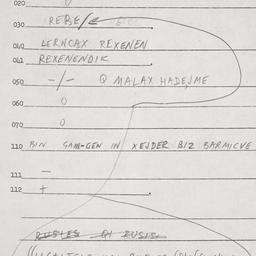 020 0
030 REBE/
040 LERNCAX REXENEN
041 REXENENDIK
050 -/- Q MALAX HADEJME
060 0
070 0
110 BIN GAM-GEN IN XEJDER BIZ BARMICVE
111 -
112 +